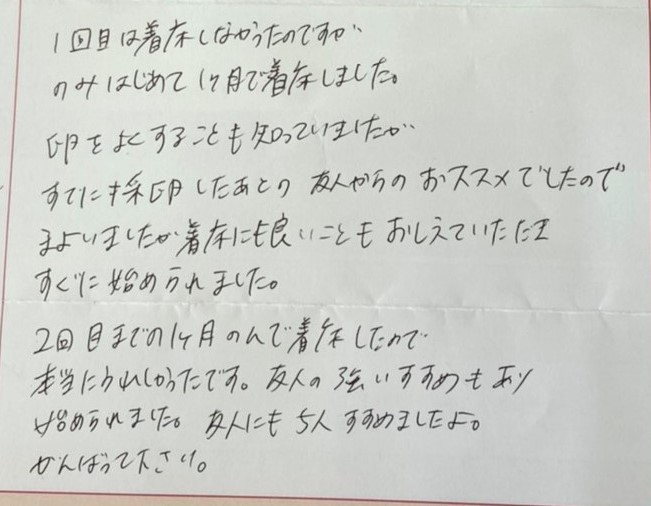 1回目は着床しなかったのですが
のみはじめて1ヶ月で着床しました。
卵をよくすることも知っていましたが
すでに採卵したあとの友人からのおススメでしたので
まよいましたが着床にも良いこともおしえていただき
すぐに始められました。
2回目までの1ヶ月のんで着床したので
本当にうれしかったです。友人の強いすすめもあり
始められました。友人にも5人すすめましたよ。
がんばって下さい。